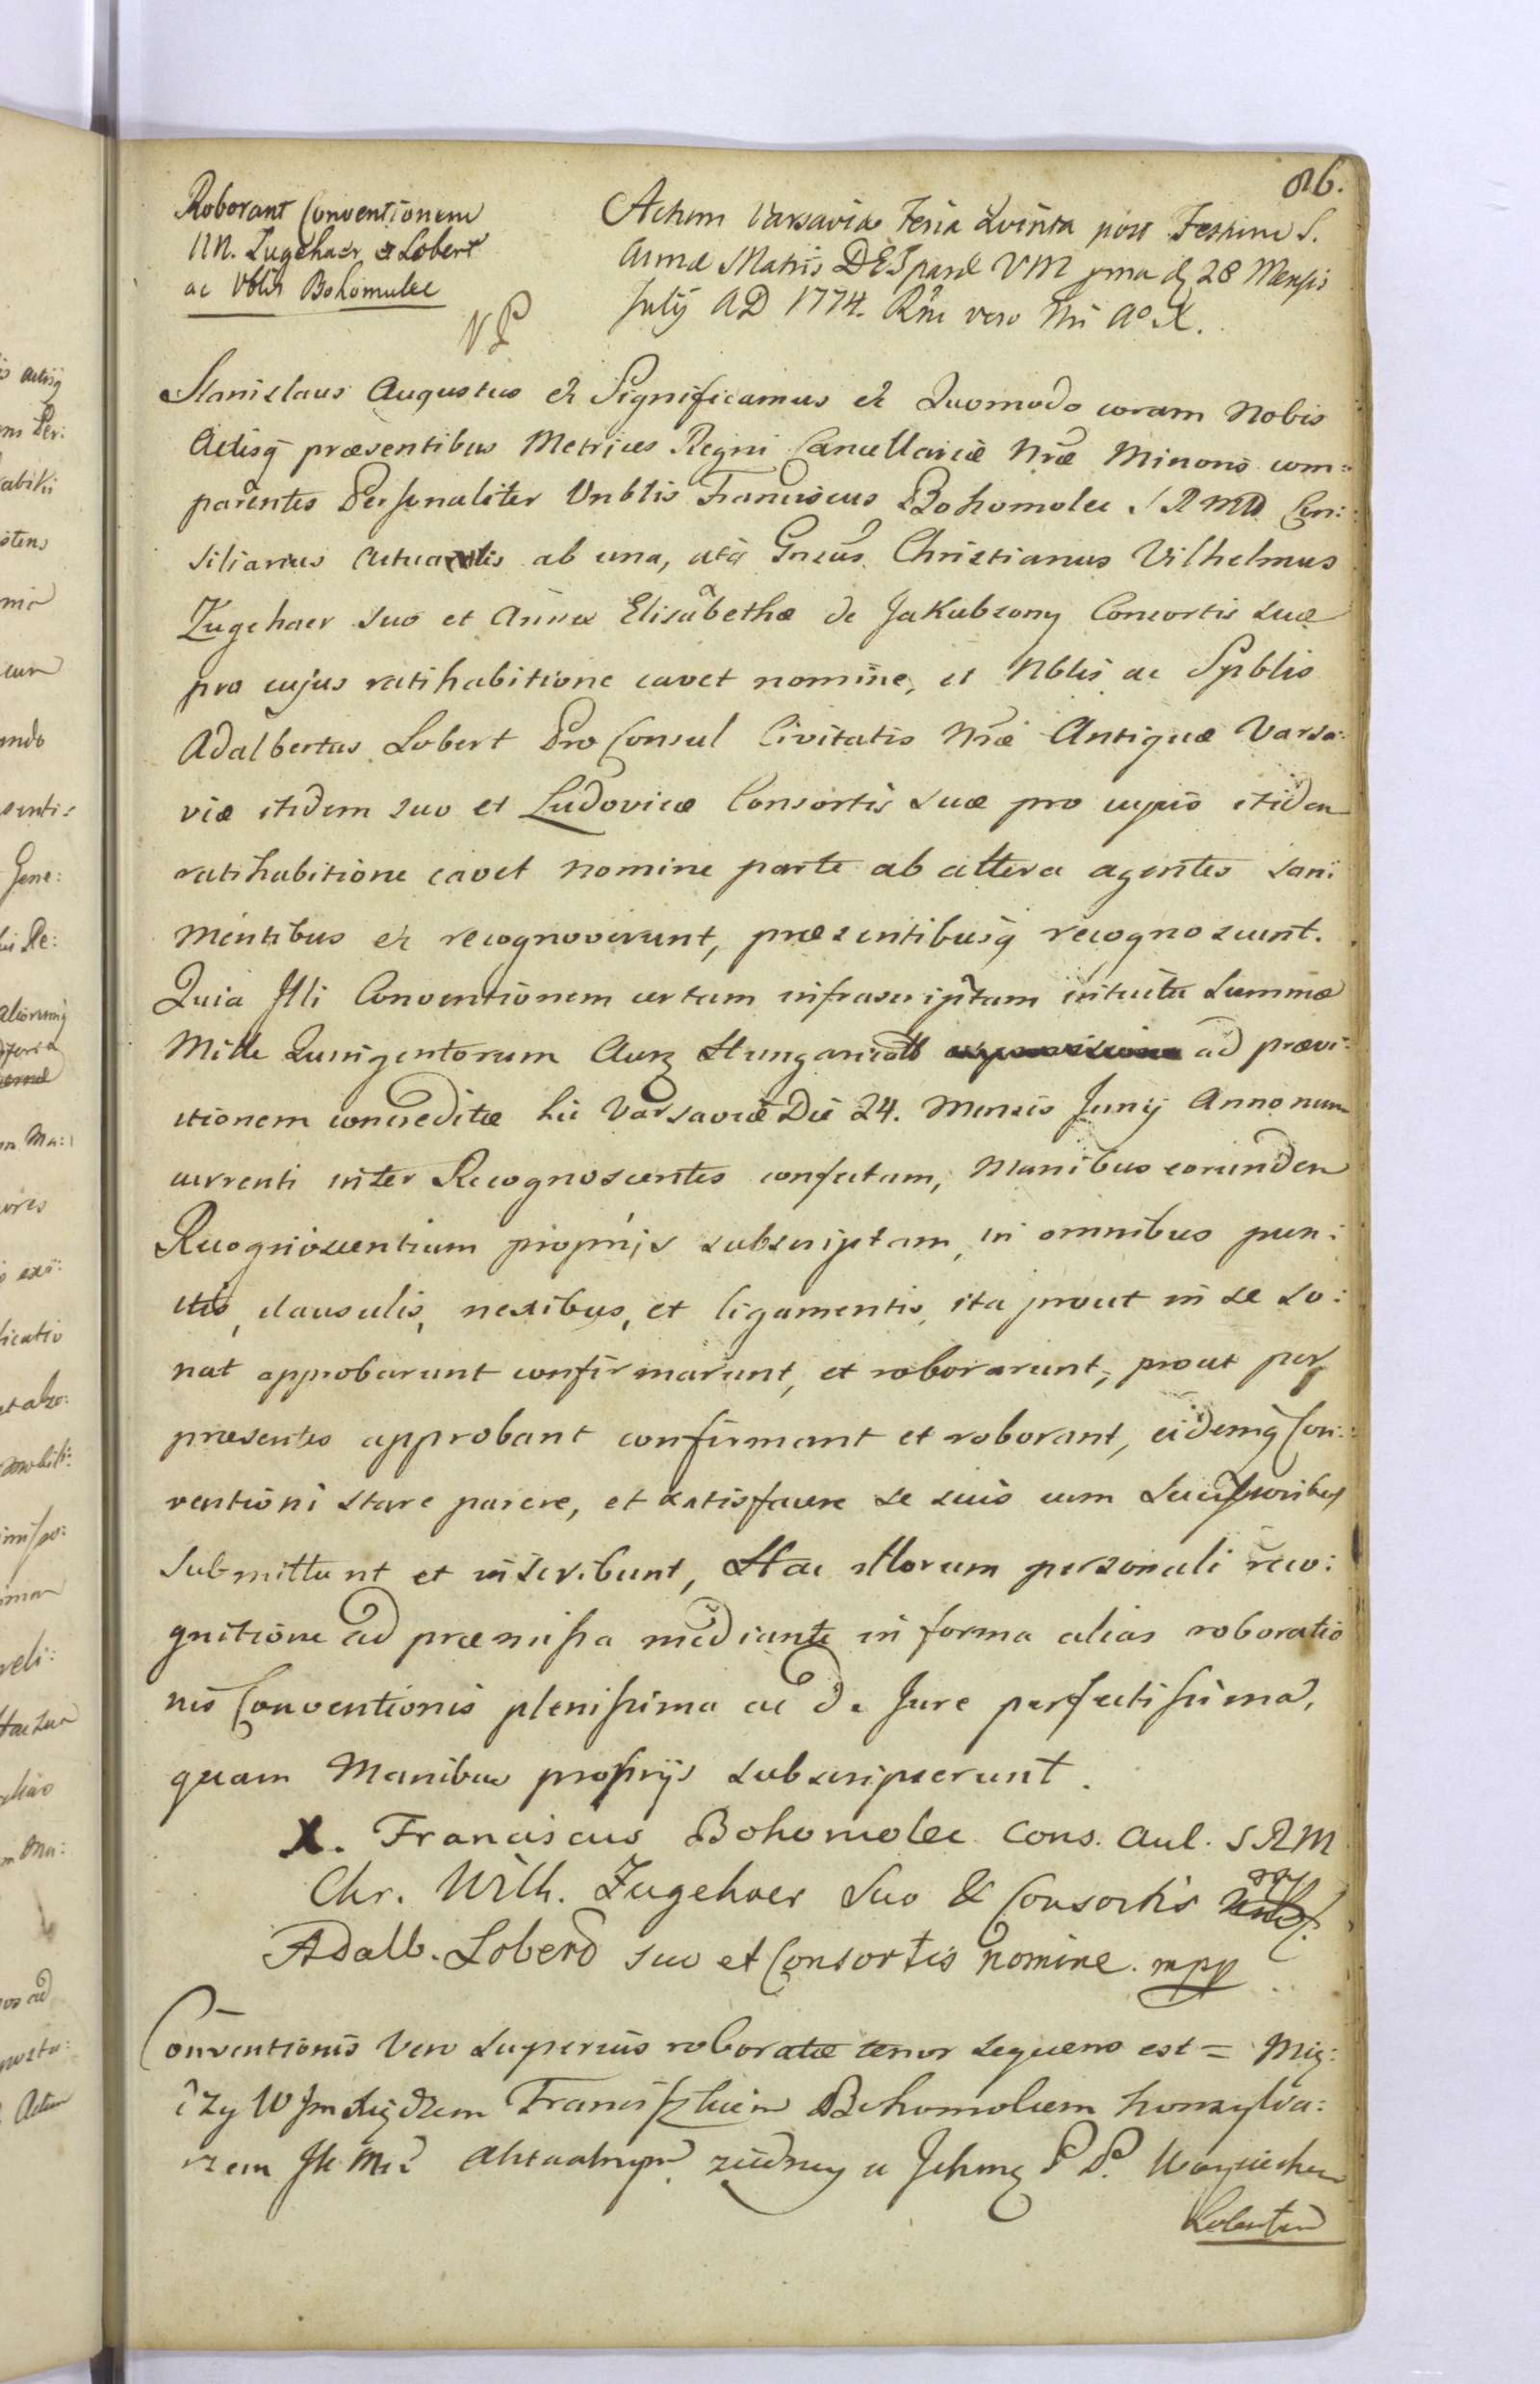 86.
Roborant Conventionem
NN. Zugehaer et Lobert
ac Vblis Bohomulec
NP
Actum Varsaviæ Feria Quinta post Festum S.
Annæ Matris DEIparæ VM pma dj 28 Mensis
Julij AD 1774. Rñi vero Nri Aº X.
Stanislaus Augustus et Significamus et Quomodo coram Nobis
Actisq præsentibus Metrices Regni Cancellariæ Nræ Minoris com:
parentes Personaliter Vnblis Franciscus Bohomolec SRMtis Con:
siliarius Actualis ab una, atq Gnsus Christianus Vilhelmus
Zugehaer suo et Annæ Elisabethæ de Jakubsony Consortis suæ
pro cujus ratihabitione cavet nomine, et Nblis ac Spblis
Adalbertus Lobert Pro Consul Civitatis Nræ Antiquæ Varsa:
viæ itidem suo et Ludovicæ Consortis suæ pro cujus itidem
ratihabitione cavet nomine parte ab altera agentes sani
mentibus et recognoverunt, præsentibusq recognoscunt.
Quia Illi Conventionem certam infrascriptam intuitu Summæ
Mille Quingentorum Aur Hungaricall ad provi:
sionem concreditæ hic Varsaviæ Die 24. Mensis Junij Anno nunc
currenti inter Recognoscentes confectam, Manibus eorundem
Recognoscentium proprijs subscriptam, in omnibus pun:
ctis, clausulis, nexibus, et ligamentis, ita prout in se so:
nat approbarunt confirmarunt, et roborarunt, prout per
præsentes approbant confirmant et roborant, eidemq Con:
ventioni stare parere, et satisfacere se suis cum Successoribus
submittunt et inscribunt, Hac illorum personali reco:
gnitione ad præmissa mediante in forma alias roboratio
nis Conventionis plenissima ac de Jure perfectissima,
quam Manibus proprijs subscripserunt.
X. Franciscus Bohomolec Cons. Aul. SRM
Chr. Wilh. Zugehaer Suo & Consortis
Adalb. Loberd suo et Consortis nomine. mpp
Conventionis vero superius roboratæ tenor sequens est = Mię:
dzy W Jm Xiędzem Franciszkiem Bohomolcem konsylia:
rzem JK Mci Aktualnym z jedney a Jchmę P P. Woyciechem
Lobertem